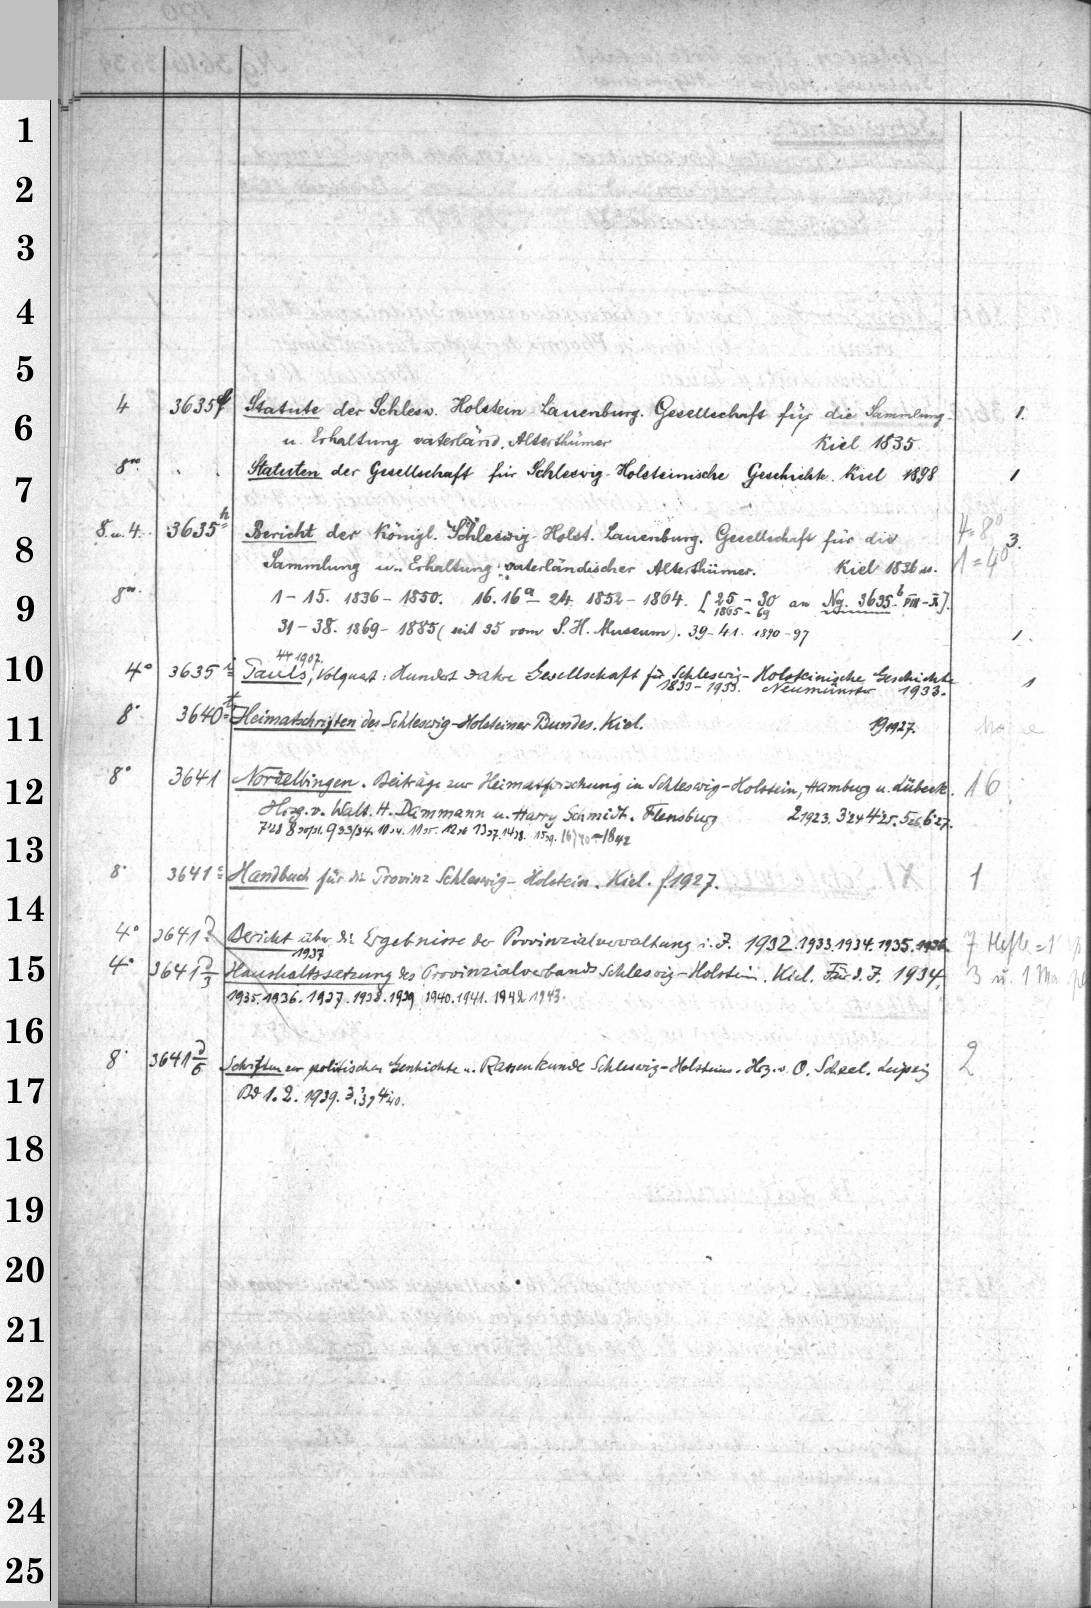 1
2
3
4
5
4 3635f Statute der Schlesw. Holstein Lauenburg. Gesellschaft für die Sammlung 1.
6
u. Erhaltung vaterländ. Alterthümer Kiel 1835.
8vo. " " Statuten der Gesellschaft für Schleswig-Holsteinische Geschichte. Kiel 1898 1
7
8. u. 4. 3635h Bericht der Königl. Schleswig-Holst. Lauenburg. Gesellschaft für die 4=8° 3.
8
Sammlung u. Erhaltung vaterländischer Alterthümer. Kiel 1836 u. 1=4°
8vo. 1-15. 1836-1850. 16.16a-24. 1852-1864. [25-30 an Ng. 3635b VIII-X].
9
1865-69
31-38. 1869-1885 (seit 35 vom S. H. Museum). 39-41. 1890-97 1.
44 1907.
10
4° 3635i Pauls, Volquart: Hundert Jahre Gesellschaft für Schleswig-Holsteinische Geschichte 1
1833-1933. Neumünster 1933.
8° 3640 Heimatschriften des Schleswig-Holsteiner Bundes. Kiel. 1927.
11
8° 3641 Nordelbingen. Beiträge zur Heimatforschung in Schleswig-Holstein, Hamburg u. Lübeck. 16
12
Hrsg. v. Walt. H. Dammmann u. Harry Schmidt. Flensburg 2 1923. 3 24 4 25. 5 26. 6 27.
13
8° 3641c Handbuch für die Provinz Schleswig-Holstein. Kiel. f. 1927. 1
14
4° 3641 Bericht über die Ergebnisse der Provinzialverwaltung i. J. 1932. 1933. 1934. 1935. 1936. 7 Hefte=1
1937
15
4° 3641 Haushaltssatzung des Provinzialverbands Schleswig-Holstein. Kiel. Für d. J. 1934, 3 u. 1
1935. 1936. 1937. 1938. 1939 1940. 1941. 1942 1943.
16
8° 3641 Schriften zur politischen Geschichte u. Rassenkunde Schleswig-Holsteins. Hrg. v. O. Scheel. Leipzig 2
17
Bd 1. 2. 1939. 3,39 4 40.
18
19
20
21
22
23
24
25